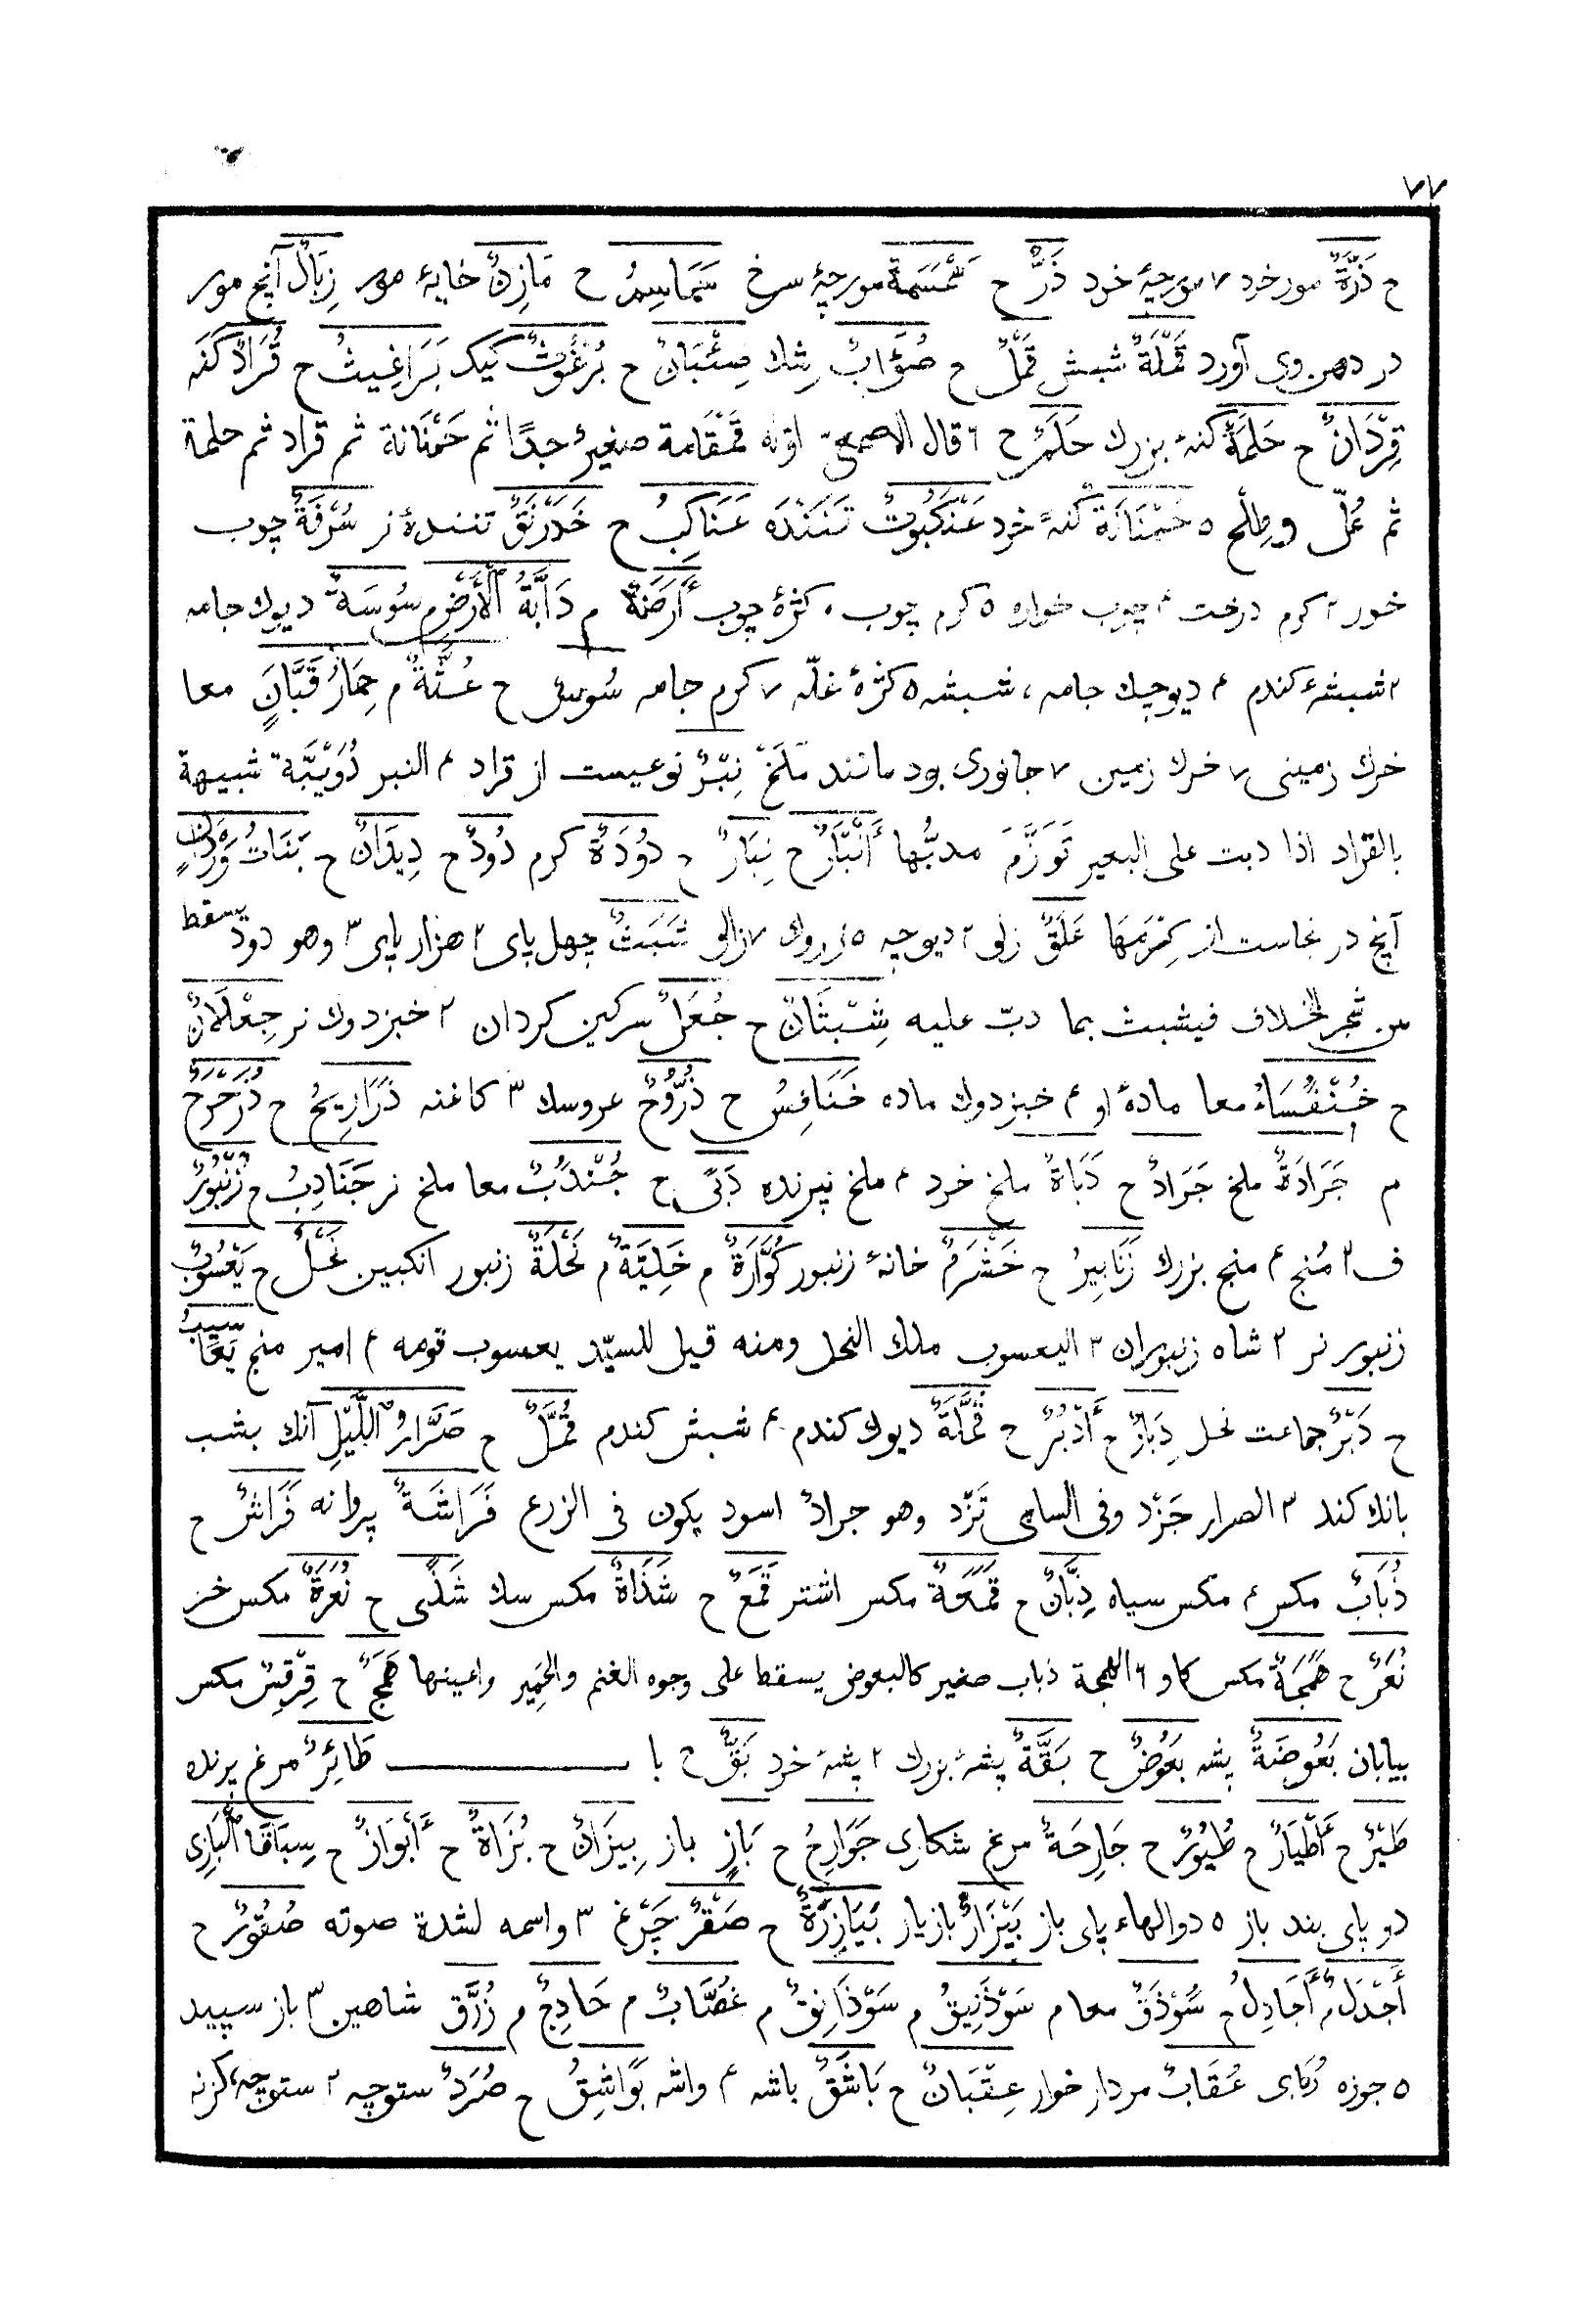 ٧٧
ح ذَرَّةٌ مور خرد ٧ مورچهٔ خرد ذَرٌّ ح سَمْسَمَةٌ مورچهٔ سرخ سَمَاسِمُ ح مَازِنٌ خایهٔ مور زِبَالٌ آنچ مور
در دهن وی آورد قَمْلَةٌ شبش قَمْلٌ ح صُؤَابٌ رشك صِئْبَانٌ ح بُرْغُوثٌ كیك بَرَاغِيثُ ح قُرَادٌ كنه
قِرْدَانٌ ح حَلَمَةٌ كنهٔ بزرك حَلَمٌ ح ٦ قال الاصمعیّ اوّله قَمْقَامة صغیرٌ جدًا ثم حَمْنَانة ثم قراد ثم حلمة
ثم عُلّ وطِلْح ٥ حَمْنَانَةٌ كنهٔ خرد عَنْكَبُوتٌ تَنَنْدَه عَنَاكِبُ ح خَدَرْنَقٌ تنندهٔ نر سُرْفَةٌ چوب
خور ٢ كرم درخت ۴ چوب خواره ٥ كرم چوب ، كژهٔ چوب أَرَضَةٌ م دَابَّةُ الْأَرْضِ م سُوسَةٌ دیوك جامه
٢ شبشهٔ كندم ۴ دیوچك جامه ، شبشه ٥ كژهٔ غلّه ٧ كرم جامه سُوسٌ ح عُثَّةٌ م حِمَارُ قَبَّانَ معا
خرك زمینی ٧ خرك زمین ٧ جانوری بود مانند مَلَخْ نِبْرٌ نوعیست از قراد ۴ النبر دُوَيْبَّة شبیهة
بالقراد اذا دبت علی البعیر تَوَرَّمَ مدبُّها أَنْبَارٌ ح نِبَارٌ ح دُودَةٌ كرم دُودٌ ح دِيدَانٌ ح بَنَاتُ وَرْدَانٍ
آنچ در نجاست از كِرْمَهَا عَلَقٌ زلو ٢ دیوچه ٥ زروك ٧ زالو شَبَثٌ چهل پای ٢ هزار پای ٣ وهو دودٌ یسقط
من شجر الخلاف فیشبث بما دبّ علیه شِبْثَانٌ ح جُعَلٌ سركین كردان ٢ خبزدوك نر جِعْلَانٌ
ح خُنْفُسَاءُ معا مادهٔ او ۴ خبزدوك ماده خَنَافِسُ ح ذُرُّوحٌ عروسك ٣ كاغنه ذَرَارِيحُ ح ذُرَحْرَحٌ
م جَرَادَةٌ ملخ جَرَادٌ ح دَبَاةٌ ملخ خرد ۴ ملخ نپرنده دَبًى ح جُنْدَبٌ معا ملخ نر جَنَادِبُ ح زُنْبُورٌ
ف ٢ مُنج ۴ منج بزرك زَنَابِيرُ ح خَشْرَمٌ خانهٔ زنبور كُوَّارَةٌ م خَلِيَّةٌ م نَحْلَةٌ زنبور انكبین نَحْلٌ ح يَعْسُوبٌ
زنبور نر ٢ شاه زنبوران ٣ الیعسوب ملك النحل ومنه قیل للسیّد یعسوب قومه ۴ امیر منج يَعَاسِيبُ
ح دَبْرٌ جماعت نحل دِبَارٌ ح أَدْبُرٌ ح قُمَّلَةٌ دیوك كندم ۴ شبش كندم قُمَّلٌ ح صَرَّارُ اللَّيْلِ آنك بشب
بانك كند ٣ الصرار جَزْد وفی السامی تَزْد وهو جرادٌ اسود یكون فی الزرع فَرَاشَةٌ پروانه فَرَاشٌ ح
ذُبَابٌ مكس ۴ مكس سیاه ذِبَّانٌ ح قَمَعَةٌ مكس اشتر قَمَعٌ ح شَذَاةٌ مكس سك شَذًى ح نُعَرَةٌ مكس خر
نُعَرٌ ح هَمَجَةٌ مكس كاو ٦ الهمجة ذباب صغیر كالبعوض یسقط علی وجوه الغنم والحَمِير واعینها هَمَجٌ ح قِرْقِسٌ مكس
بیابان بَعُوضَةٌ پشه بَعُوضٌ ح بَقَّةٌ پشهٔ بزرك ٢ پشهٔ خرد بَقٌّ ح با طَائِرٌ مرغ پرنده
طَيْرٌ ح أَطْيَارٌ ح طُيُورٌ ح جَارِحَةٌ مرغ شكاری جَوَارِحُ ح بَازٍ باز بِيزَانٌ ح بُزَاةٌ ح أَبْوَازٌ ح سِبَاقَا الْبَازِی
دو پای بند باز ٥ دوالهاء پای باز بَيْزَارٌ بازیار بَيَازِرَةٌ ح صَقْرٌ چَرْغ ٣ واسمه لشدة صوته صُقُورٌ ح
أَجْدَلٌ م أَجَادِلُ ح سُوْذَقٌ معا م سَوْذَنِيقٌ م سَوْذَانِقٌ م غَضَّابٌ م حَادِجٌ م زُرَّق شاهین ٣ باز سپید
٥ جوزه ربای عُقَابٌ مردار خوار عِقْبَانٌ ح بَاشَقٌ باشه ۴ واشه بَوَاشِقُ ح صُرَدٌ ستوچه ٢ ستوچهٔ كزنه